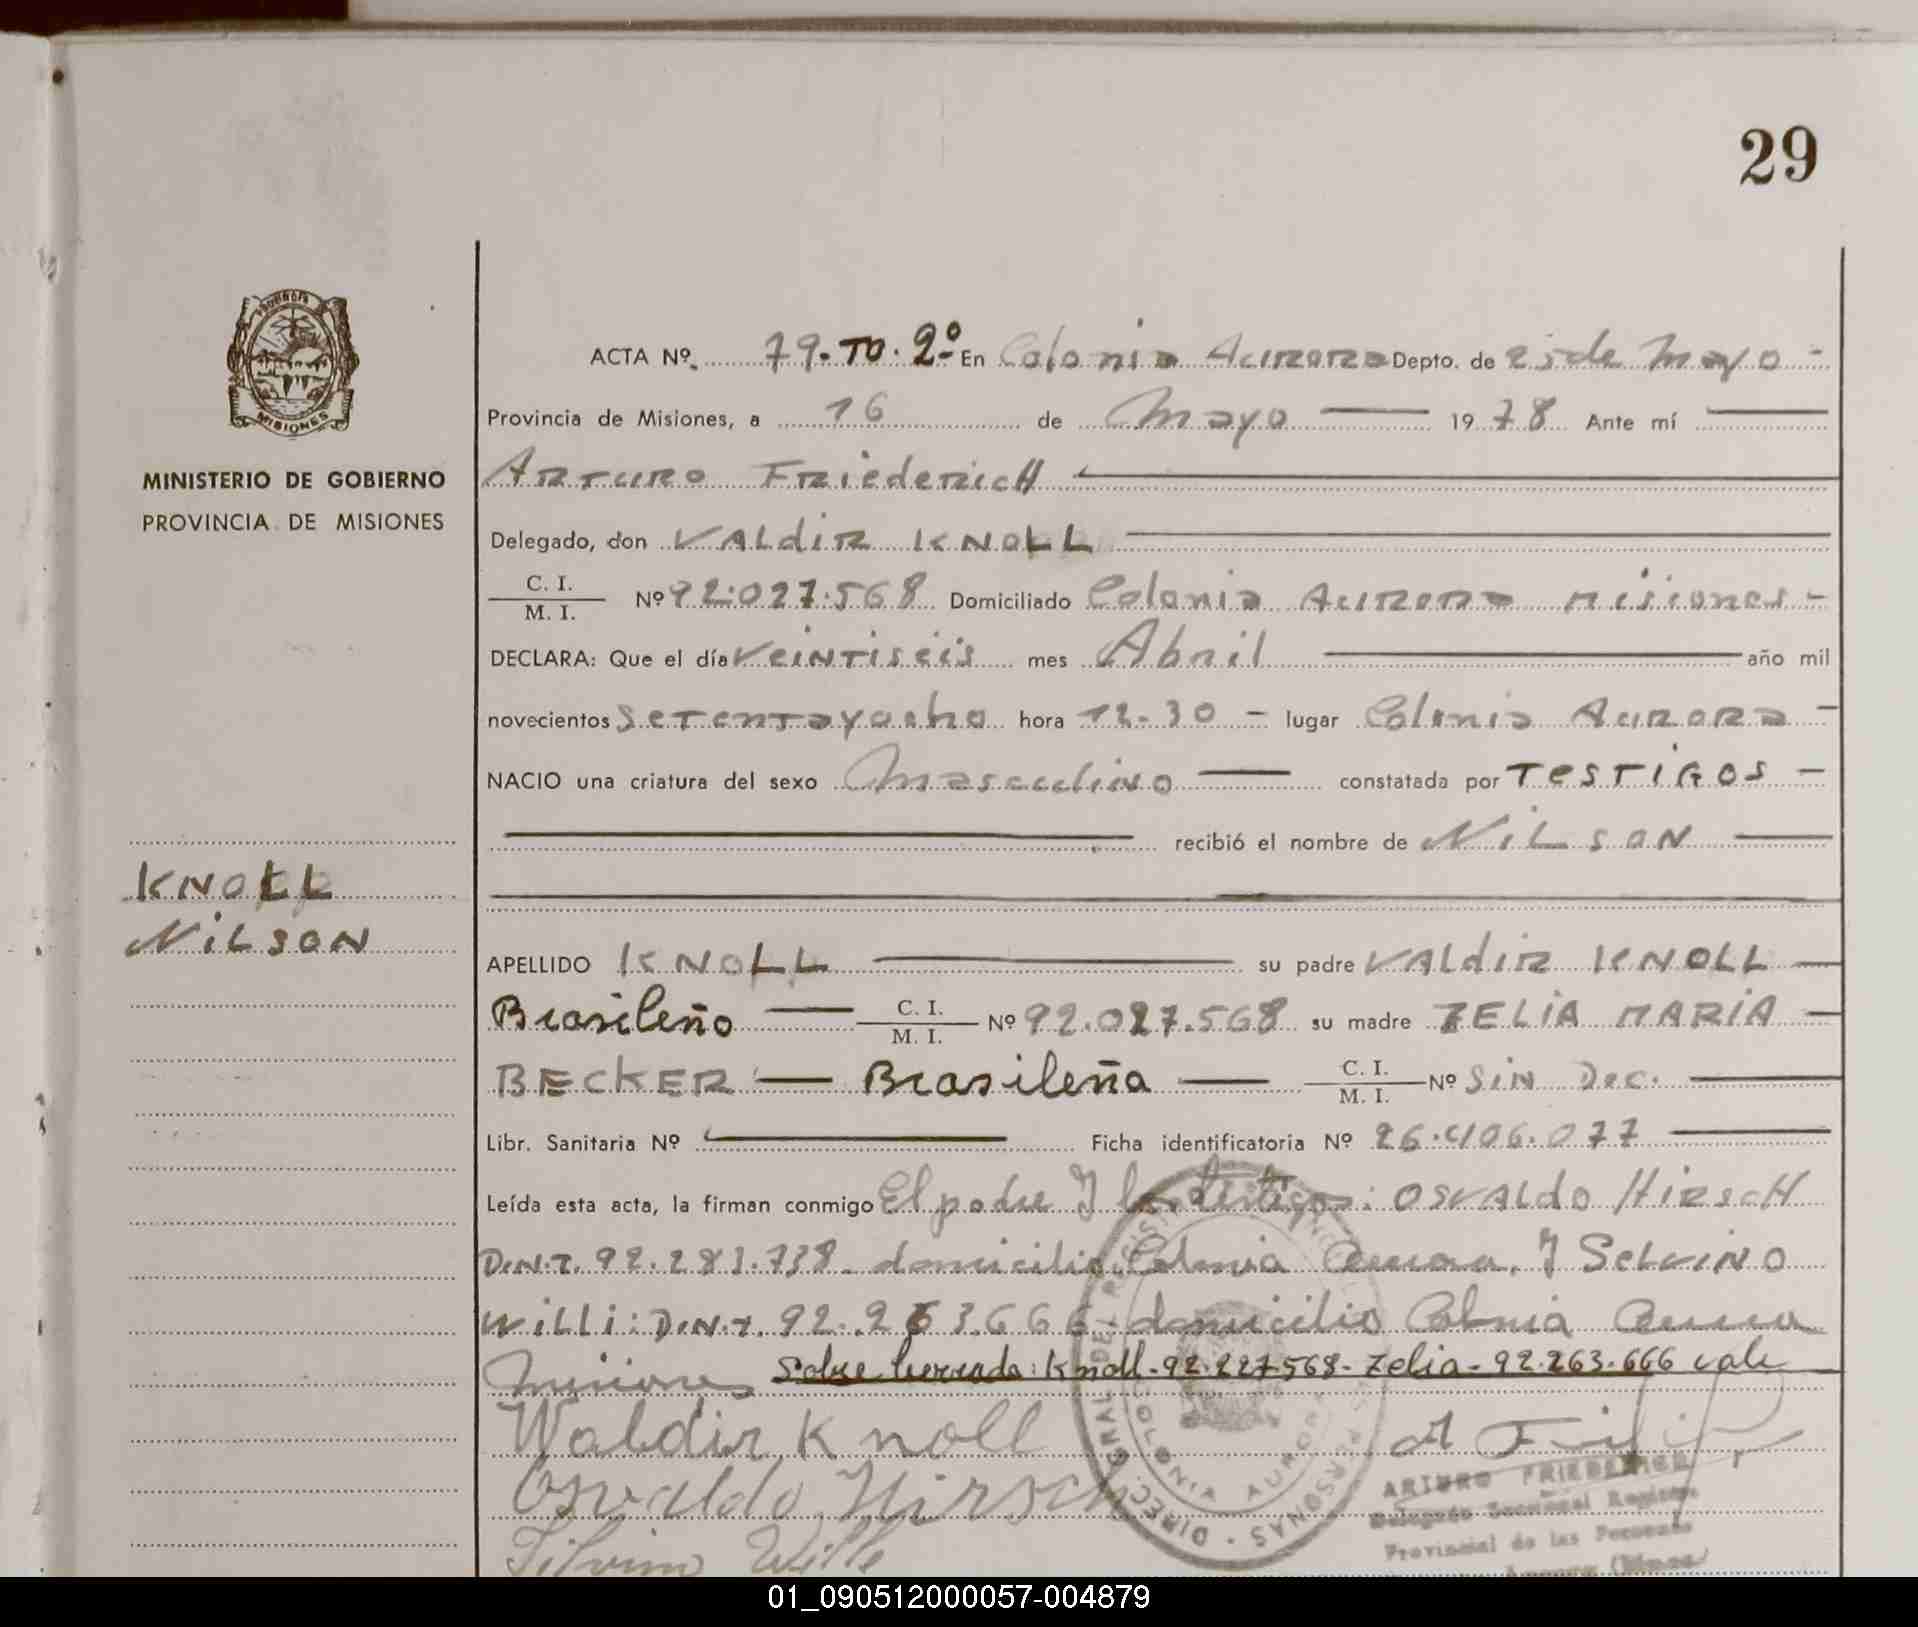 29
PROVINCIA
MISIONES
MINISTERIO DE GOBIERNO
PROVINCIA DE MISIONES
KNOLL
NILSON
ACTA Nº. 79. Tº. 2º En Colonia Aurora Depto. de 25 de Mayo -
Provincia de Misiones, a 16 de Mayo 1978 Ante mí
ARTURO FRIEDERICH
Delegado, don VALDIR KNOLL
C. I. / M. I. Nº 92.027.568 Domiciliado Colonia Aurora Misiones -
DECLARA: Que el día veintiséis mes Abril año mil
novecientos setentayocho hora 12.30 - lugar Colonia Aurora -
NACIO una criatura del sexo Masculino constatada por TESTIGOS -
recibió el nombre de NILSON
APELLIDO KNOLL su padre VALDIR KNOLL
Brasileño C. I. / M. I. Nº 92.027.568 su madre ZELIA MARIA
BECKER - Brasileña C. I. / M. I. Nº Sin Doc.
Libr. Sanitaria Nº Ficha identificatoria Nº 26.406.077
Leída esta acta, la firman conmigo El padre y los testigos: OSVALDO HIRSCH
D.N.I. 92.283.738. domicilio Colonia Aurora, y SELVINO
WILLI: D.N.I. 92.263.666 domicilio Colonia Aurora
Misiones Sobre borrado: Knoll - 92.227.568 - Zelia - 92.263.666 vale
Waldir Knoll
Osvaldo Hirsch
Silvino Willi
DIREC. GRAL. DEL REGIST PERSONAS
COLONIA AURORA
ARTURO FRIEDERICH
Delegado Seccional Registro
Provincial de las Personas
01_090512000057-004879